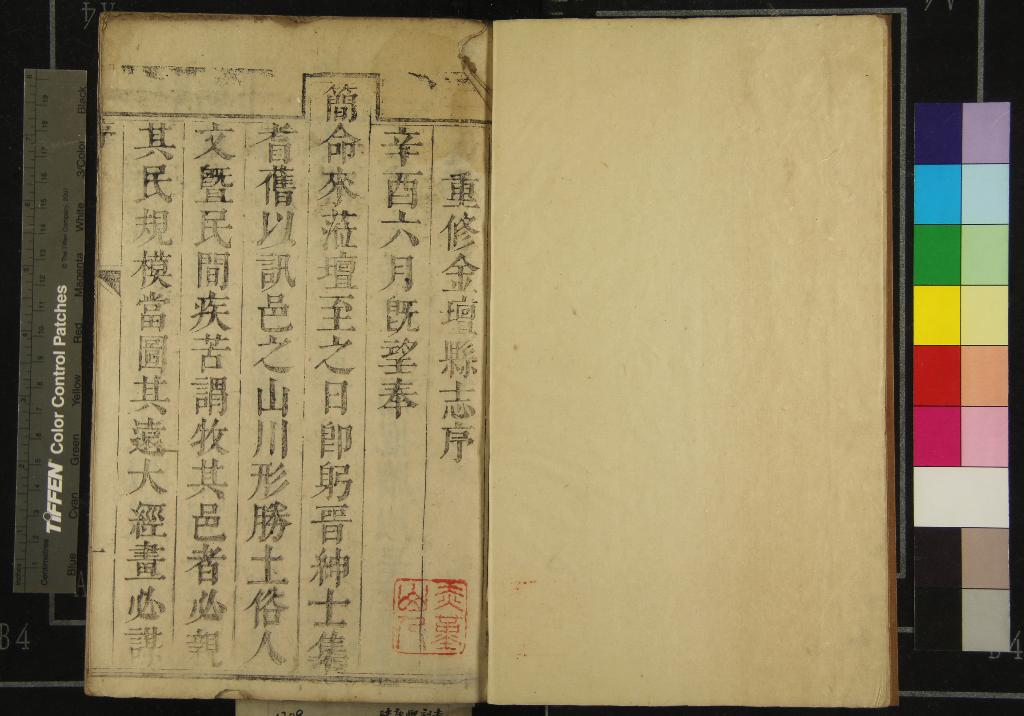 重修金壇縣志序
辛酉六月旣望奉
簡命來蒞壇至之日卽躬晋紳士集
耆舊以訊邑之山川形勝土俗人
文曁民間疾苦謂牧其邑者必親
其民規模當圖其遠大經畫必謀
TIFFEN Color Control Patches
© The Tiffen Company, 2007
Centimetres
Inches
Blue
Cyan
Green
Yellow
Red
Magenta
White
3/Color
Black
B4
A4